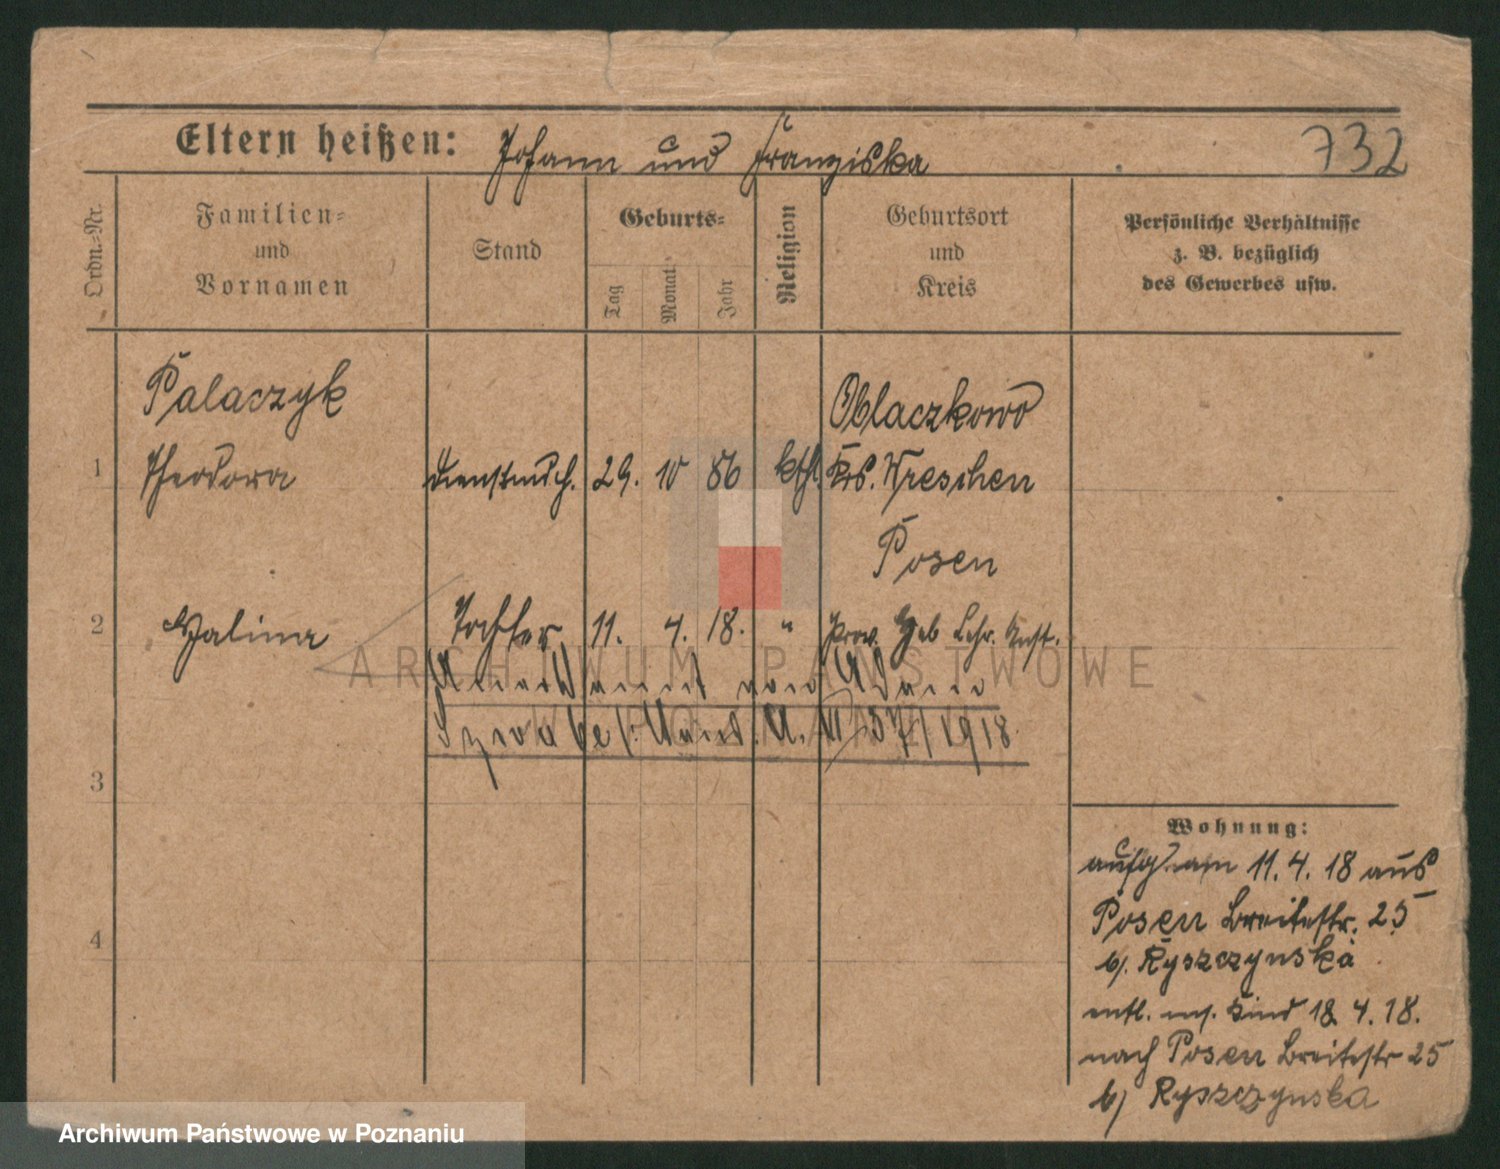 Eltern heißen: Johann und Franziska
732
Ordn.-Nr.
Familien-
und
Vornamen
Stand
Geburts-
Tag
Monat
Jahr
Religion
Geburtsort
und
Kreis
Persönliche Verhältnisse
z. B. bezüglich
des Gewerbes usw.
Palaczyk
Oblaczkowo
1 Theodora dienstmdch. 29. 10 86 kth. Krs. Wreschen
Posen
2 Halina Tochter 11. 4. 18. " Prov. Heb Lehr. Anst.
vom
1918
3
4
Wohnung:
aufg. am 11. 4. 18 aus
Posen Breitestr. 25
b/. Ryszczynska
entl. m/. Kind 18 4. 18.
nach Posen Breitestr 25
b/ Ryszczynska
ARCHIWUM PAŃSTWOWE
W POZNANIU
Archiwum Państwowe w Poznaniu